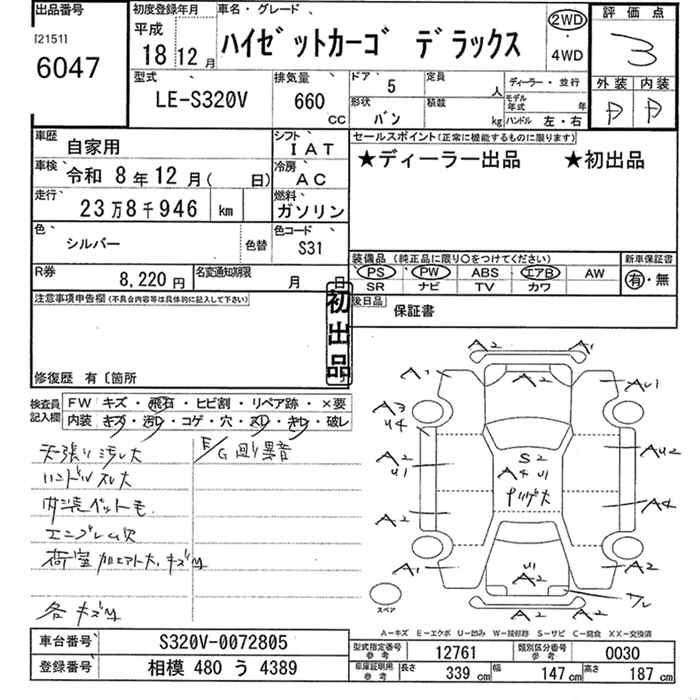 出品番号 初度登録年月 車名・グレード 評価点
[2151] 平成 ハイゼットカーゴ デラックス 2WD 3
6047 18 12月 4WD
型式 排気量 ドア 5 定員 人 ディーラー・並行 外装 内装
LE-S320V 660 cc 形状 バン 積載 kg モデル年式 年 ハンドル 左・右
車歴 自家用 シフト IAT セールスポイント(正常に機能するものに限ります)
車検 令和 8年 12月( 日) 冷房 AC ★ディーラー出品 ★初出品
走行 23万8千946 km 燃料 ガソリン
色 シルバー 色替 色コード S31
装備品(純正品に限り〇をつけてください) 新車保証書
PS PW ABS エアB AW 有・無
SR ナビ TV カワ
R券 8,220円 名変通知期限 月 日
後日品 保証書
注意事項申告欄(不具合内容等は具体的に記入して下さい)
初出品
修復歴 有〔箇所
検査員記入欄 FW キズ・飛石・ヒビ割・リペア跡・×要
内装 キズ・汚れ・コゲ・穴・スレ・キレ・破レ
天張り汚レ大
ハンドルスレ大
内装ペット毛
エンブレム欠
A2 A1
A2
A1 AU1
A3
U4
S2
A4 U1
A2
U1
AU2
A2 A4
A1 U1 A2 A2
A2
スペア
A−キズ E−エクボ U−凹み W−補修跡 S−サビ C−腐食 XX−交換済
車台番号 S320V-0072805 型式指定番号 参考 12761 類別区分番号 参考 0030
登録番号 相模 480 う 4389 車庫証明用 参考 長さ 339 cm 幅 147 cm 高さ 187 cm